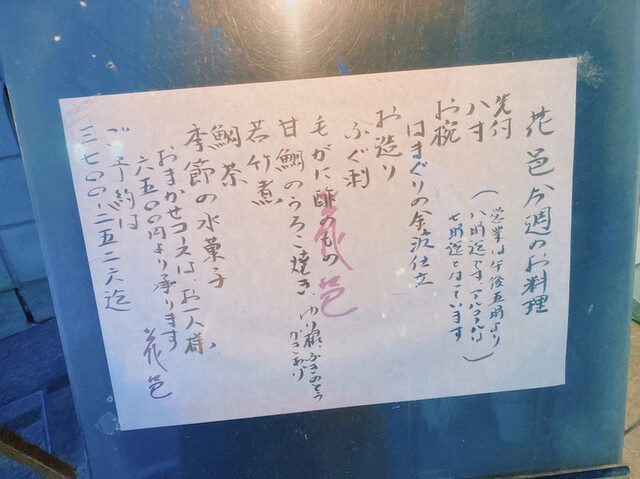 花邑今週のお料理
(営業は午後五時より
八時迄です、アルコールは
七時迄となっています)
先付
八寸
お椀
はまぐりの金沢仕立
お造り
ふぐ刺
毛がに酢のもの
甘鯛のうろこ焼き ゆり根ふきのとう
かきあり
若竹煮
鯛茶
季節の水菓子
おまかせコースは、お一人様、
六五〇〇円より承ります
ご予約は
三七〇〇-二五二六迄
花邑
花邑